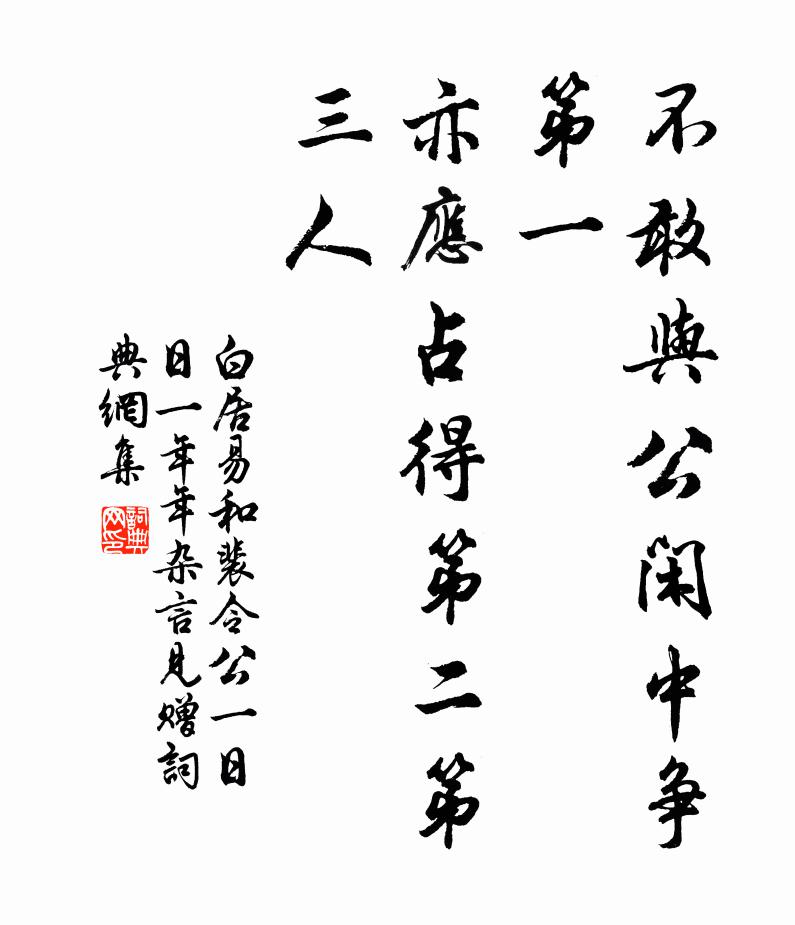 不敢與公閑中争
第一
亦應占得第二第
三人
白居易和裴令公一日
日一年年杂言見赠詞
典網集
詞典
网印